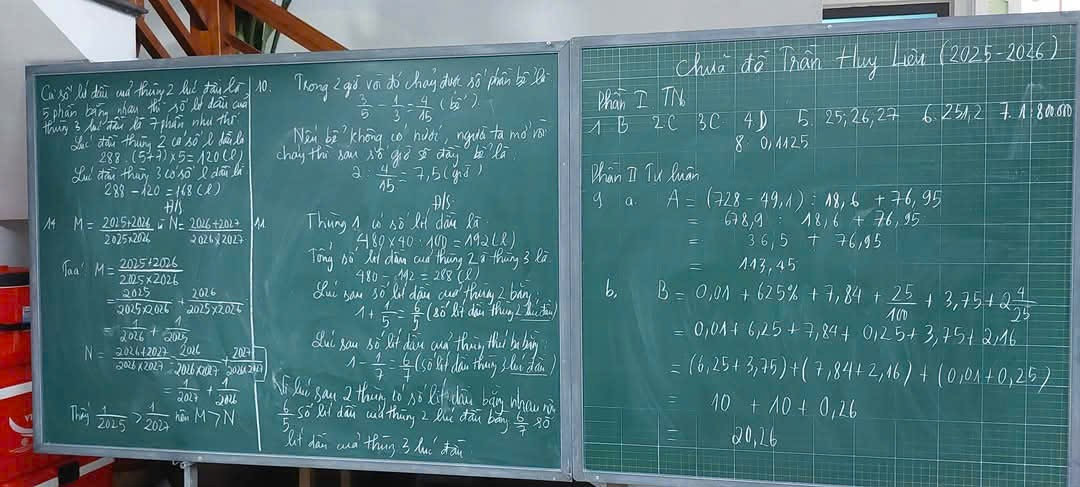 Chữa đề Trần Huy Liệu (2025-2026)
Phần I TN
1 B 2 C 3 C 4 D 5. 25, 26, 27 6. 251,2 7. 1: 800.000
8. 0,1125
Phần II Tự luận
9 a. A = (728 - 49,1) : 18,6 + 76,95
= 678,9 : 18,6 + 76,95
= 36,5 + 76,95
= 113,45
b. B = 0,01 + 625% + 7,84 + 25/100 + 3,75 + 2 4/25
= 0,01 + 6,25 + 7,84 + 0,25 + 3,75 + 2,16
= (6,25 + 3,75) + (7,84 + 2,16) + (0,01 + 0,25)
= 10 + 10 + 0,26
= 20,26
10. Trong 2 giờ vòi đó chảy được số phần bể là
3/5 - 1/3 = 4/15 (bể).
Nếu bể không có nước, người ta mở vòi
chảy thì sau số giờ sẽ đầy bể là
2 : 4/15 = 7,5 (giờ)
Đ/S
11 Thùng 1 có số lít dầu là :
480 x 40 : 100 = 192 (l)
Tổng số lít dầu của thùng 2 và thùng 3 là
480 - 192 = 288 (l)
Lúc sau số lít dầu của thùng 2 bằng
1 + 1/5 = 6/5 (số lít dầu thùng 2 lúc đầu)
Lúc sau số lít dầu của thùng thứ ba bằng
1 - 1/7 = 6/7 (số lít dầu thùng 3 lúc đầu)
Vì lúc sau 2 thùng có số lít dầu bằng nhau nên
6/5 số lít dầu của thùng 2 lúc đầu bằng 6/7 số
lít dầu của thùng 3 lúc đầu
Coi số lít dầu của thùng 2 lúc đầu là
5 phần bằng nhau thì số lít dầu của
thùng 3 lúc đầu là 7 phần như thế
Lúc đầu thùng 2 có số l dầu là
288 : (5+7) x 5 = 120 (l)
Lúc đầu thùng 3 có số l dầu là
288 - 120 = 168 (l)
Đ/S
M = 2025+2026/2025x2026 và N = 2026+2027/2026x2027
Ta có M = 2025+2026/2025x2026
= 2025/2025x2026 + 2026/2025x2026
= 1/2026 + 1/2025
N = 2026+2027/2026x2027 = 2026/2026x2027 + 2027/2026x2027
= 1/2027 + 1/2026
Thấy 1/2025 > 1/2027 nên M > N